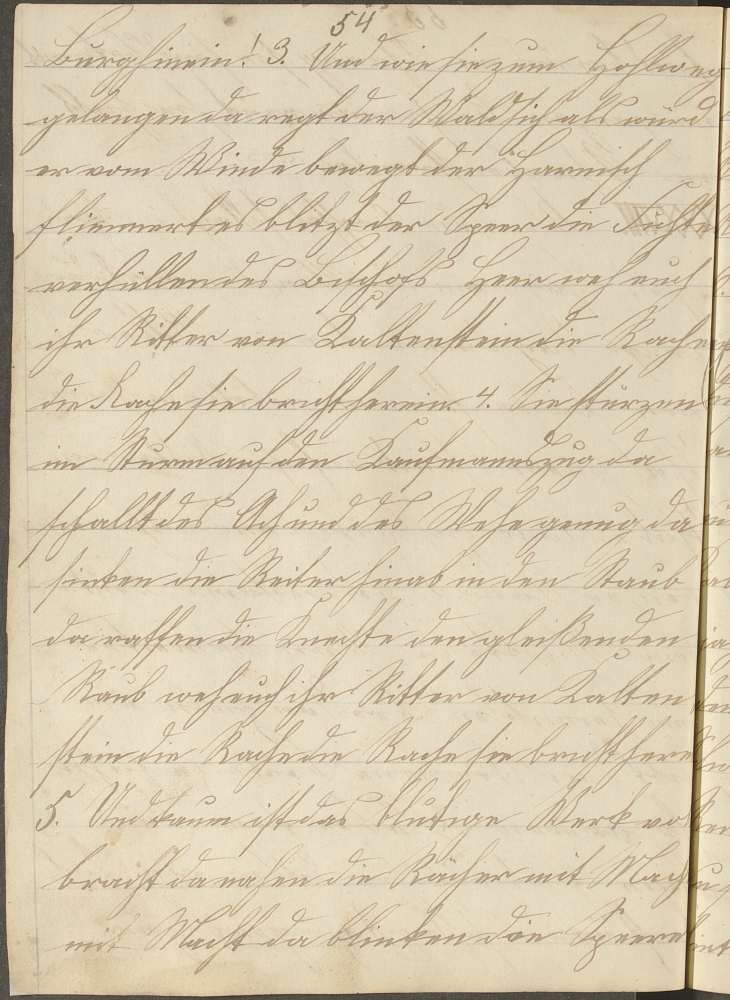 54
Burg hinein! 3. Und wie sie zum Hohlweg
gelangen da regt der Wald sich als würd
er vom Winde bewegt der Harnisch
flimmert es blitzt der Speer die Fichten
verhüllen des Bischofs Heer weh euch
ihr Ritter von Kaltenstein die Rache
die Rache sie bricht herein. 4. Sie stürzen
im Sturm auf den Kaufmannszug da
schallt des Ach und des Wehe genug da
sinken die Reiter hinab in den Staub
da raffen die Knechte den gleißenden
Raub weh euch ihr Ritter von Kalten
stein die Rache die Rache sie bricht herein
5. Und kaum ist das blutige Werk voll
bracht da nahen die Rächer mit Macht
mit Macht da blinken die Speere